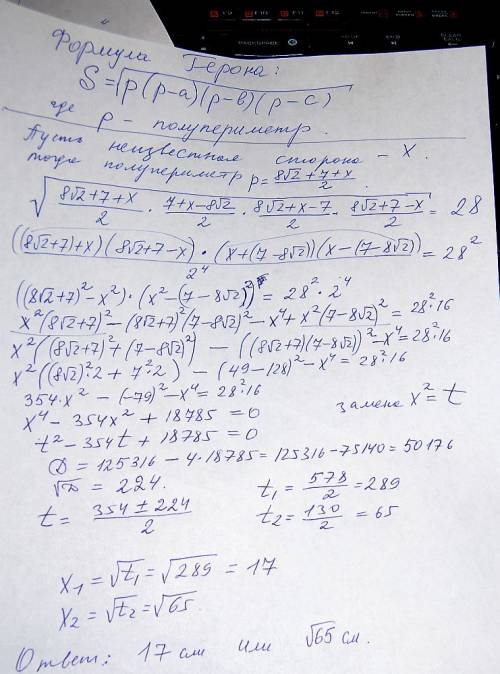 Формула Герона:
S=√(p(p-a)(p-в)(p-c))
где p - полупериметр.
Пусть неизвестная сторона - x.
тогда полупериметр p=(8√2+7+x)/2.
√((8√2+7+x)/2 · (7+x-8√2)/2 · (8√2+x-7)/2 · (8√2+7-x)/2) = 28
((8√2+7)+x)(8√2+7-x)·(x+(7-8√2))(x-(7-8√2))/2⁴ = 28²
((8√2+7)²-x²)·(x²-(7-8√2)²) = 28²·2⁴
x²(8√2+7)²-(8√2+7)²(7-8√2)²-x⁴+x²(7-8√2)² = 28²·16
x²((8√2+7)²+(7-8√2)²) - ((8√2+7)(7-8√2))²-x⁴=28²·16
x²((8√2)²·2+7²·2) - (49-128)²-x⁴ = 28²·16
354·x² - (-79)²-x⁴=28²·16
x⁴-354x²+18785=0 замена x²=t
t²-354t+18785=0
D=125316-4·18785=125316-75140=50176
√D = 224. t₁=578/2=289
t= (354±224)/2 t₂=130/2=65
x₁=√t₁=√289=17
x₂=√t₂=√65.
Ответ: 17 см или √65 см.